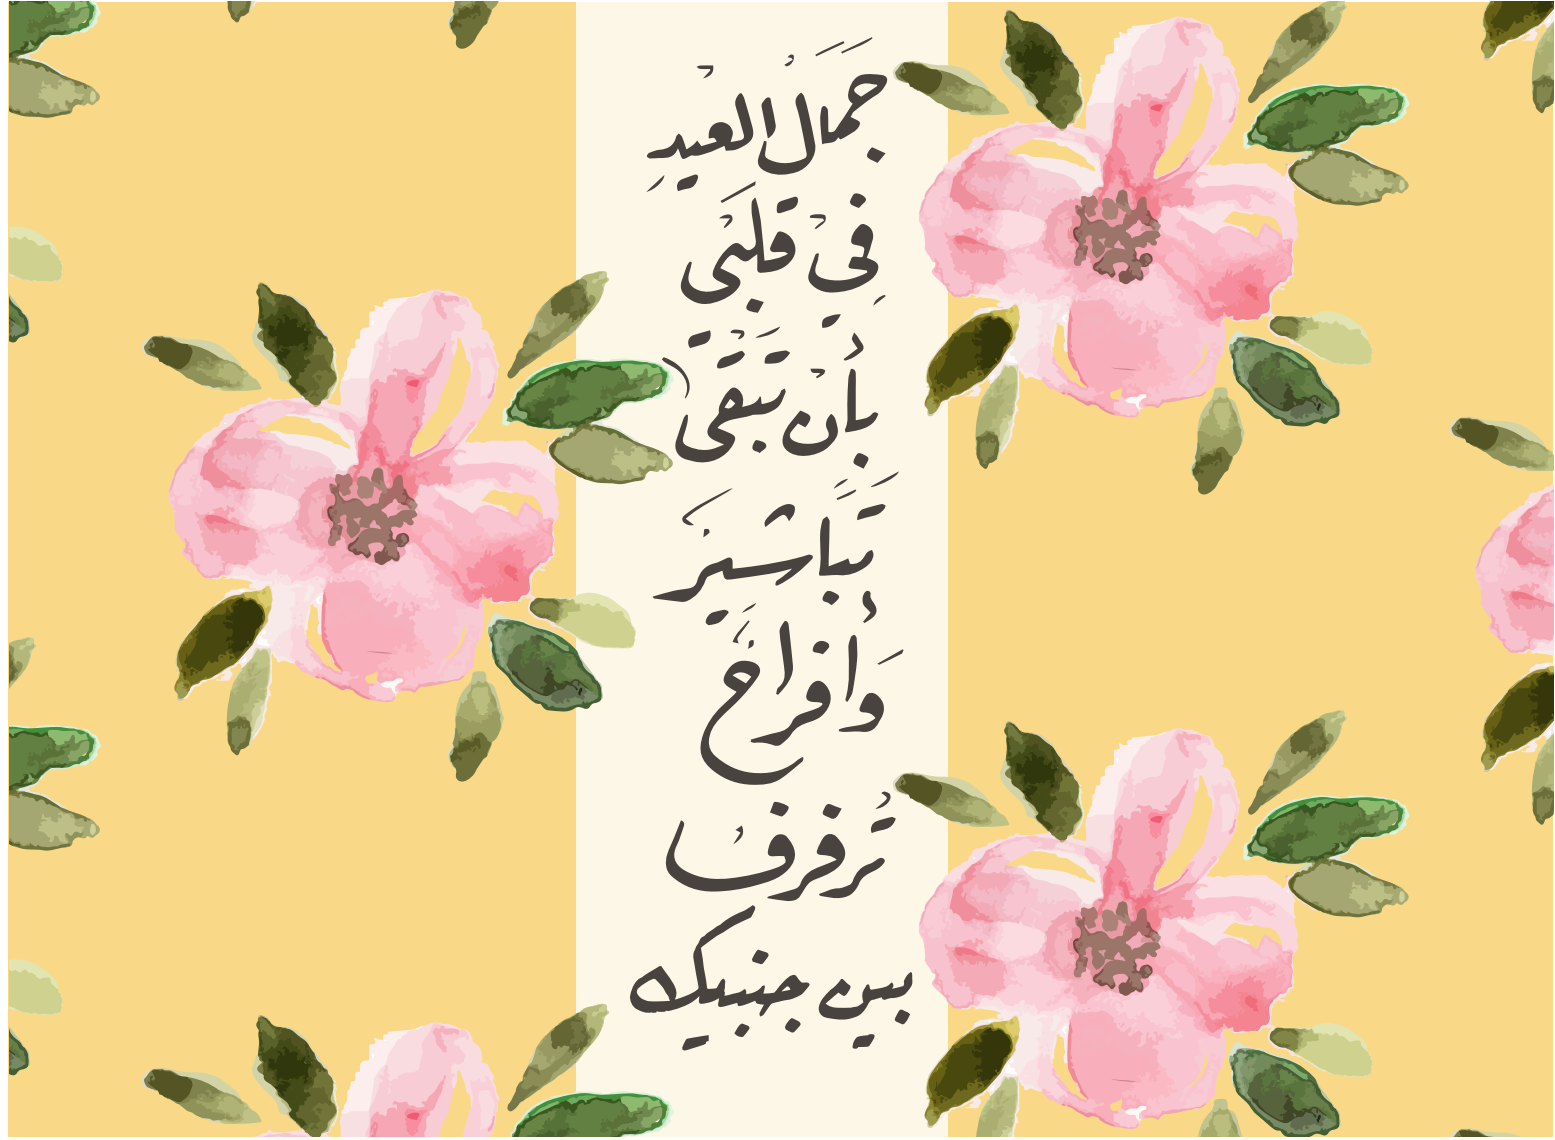 جَمَالُ الْعِيدِ
فِيْ قَلْبَيْ
بِأَنْ تَبْقَى
تَبَاشِيرَ
وَأَفْرَاحٌ
تُرَفْرِفُ
بين جنبيك